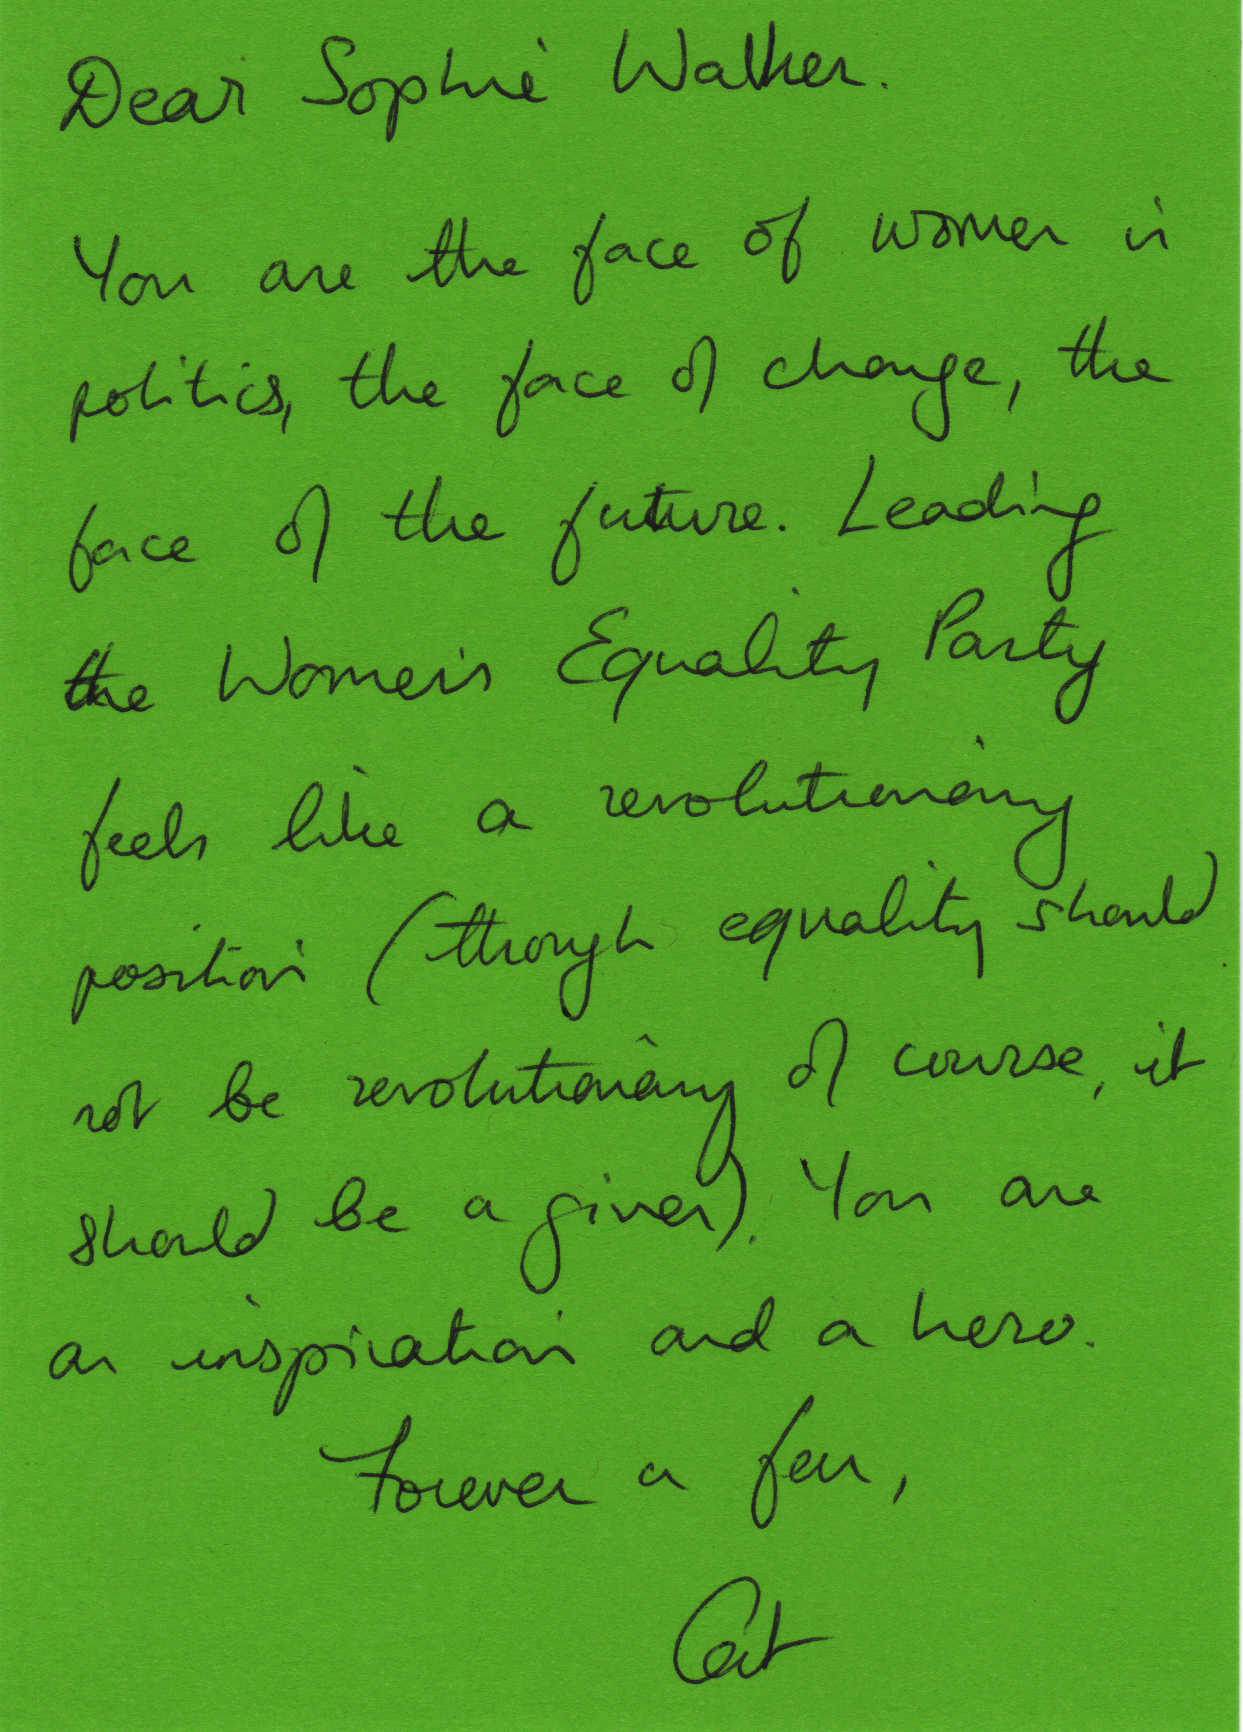 Dear Sophie Walker.
You are the face of women in
politics, the face of change, the
face of the future. Leading
the Women's Equality Party
feels like a revolutionary
position (though equality should
not be revolutionary of course, it
should be a given). You are
an inspiration and a hero.
Forever a fan,
Cat